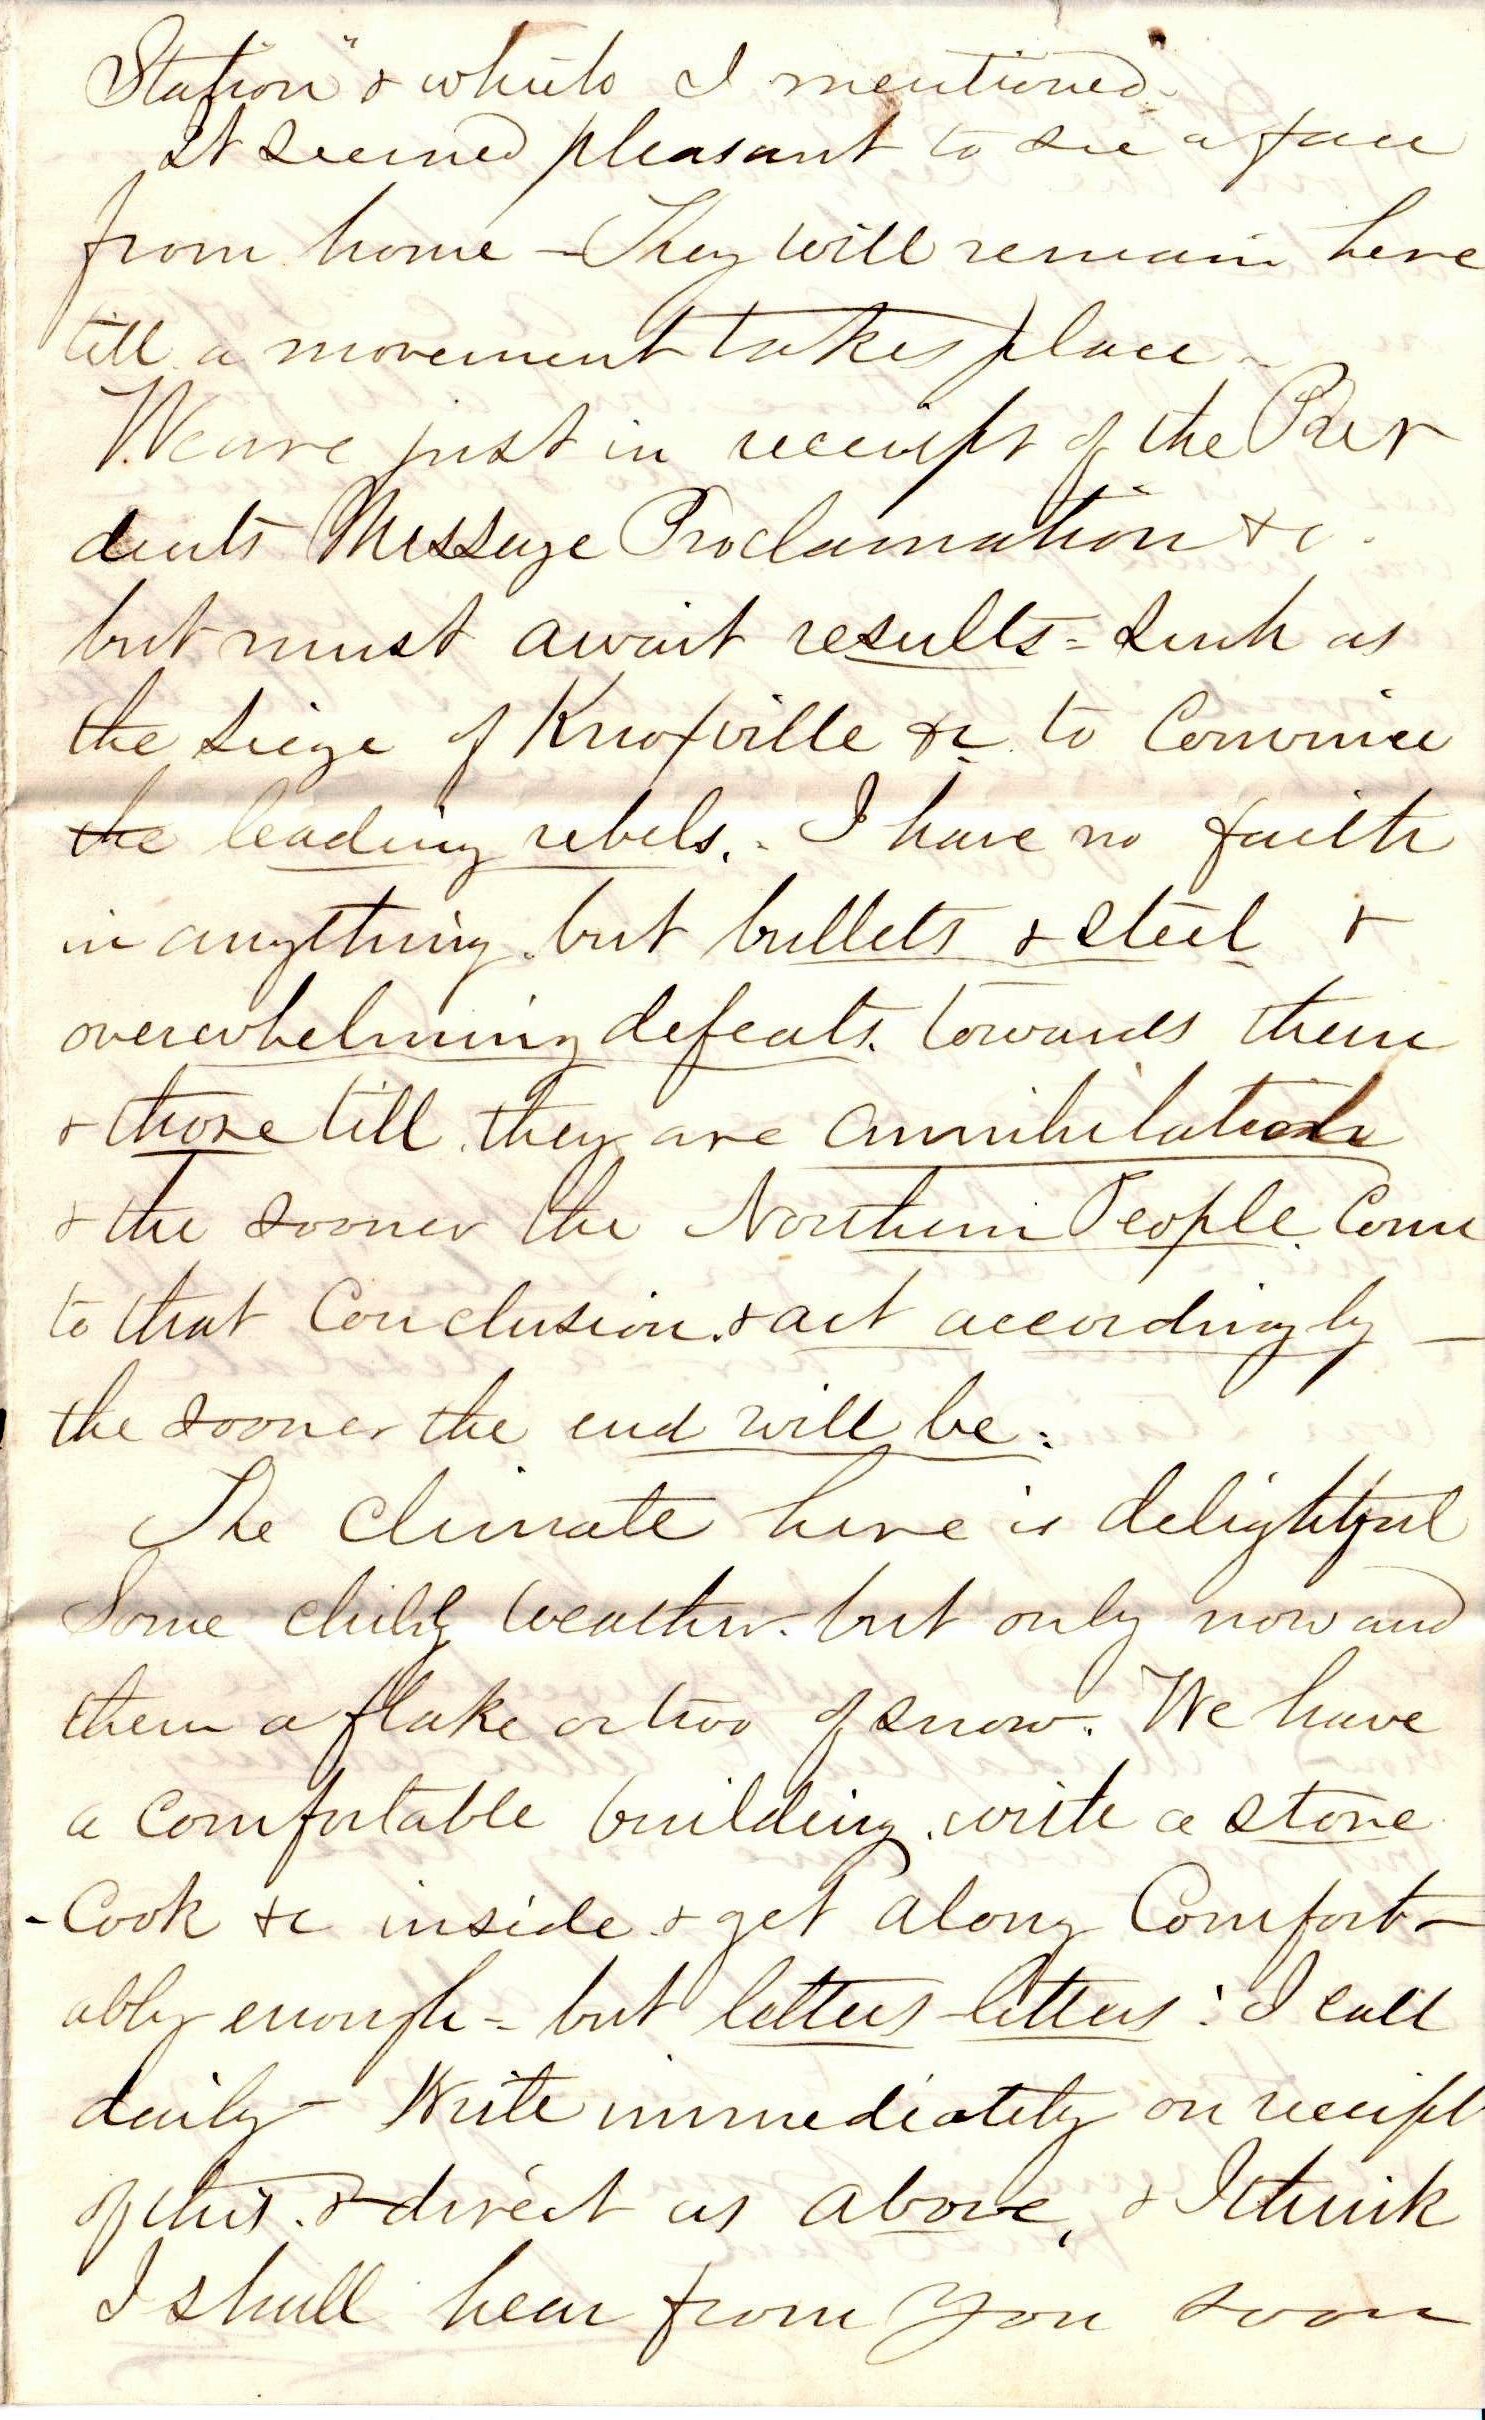 Station" & which I mentioned.
It seemed pleasant to see a face
from home - They will remain here
till a movement takes place -
We are just in receipt of the Presi
dents Message Proclamation &c.
but must await results = such as
the siege of Knoxville &c. to Convince
the leading rebels. - I have no faith
in anything but bullets & steel &
overwhelming defeats. towards them
& those till they are annihilated
& the sooner the Northern People Come
to that Conclusion. & act accordingly -
the sooner the end will be.
The climate here is delightful
Some chilly weather. but only now and
then a flake or two of snow. We have
a comfortable building. with a stove
- Cook &c inside & get along Comfort-
ably enough = but letters - letters : I call
daily - Write immediately on receipt
of this. & direct as above, & I think
I shall hear from you soon